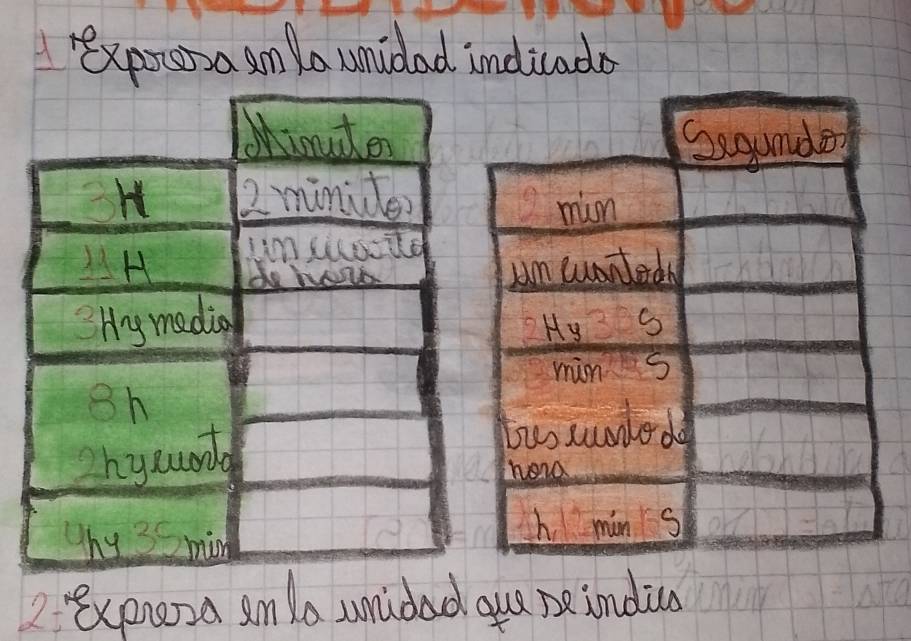 1 Expresa en la unidad indicado
Minutos
3H 2 minitos
11H un cuarto
de hora
3Hy media
8h
2hycuarto
4hy 35 min
Segundos
2 min
un cuarto dh
2Hy S
min S
tres cuarto de
hora
h, min S
2= Expresa en la unidad que se indica